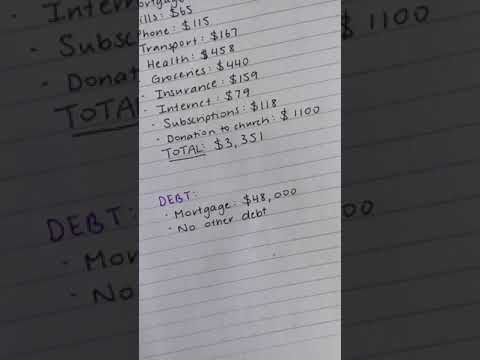 ortgage
ills: $65
Phone: $115
Transport: $167
Health: $458
Groceries: $440
· Insurance: $159
· Internet: $79
· Subscriptions: $118
· Donation to church: $1100
TOTAL: $3,351
DEBT:
· Mortgage: $48,000
· No other debt